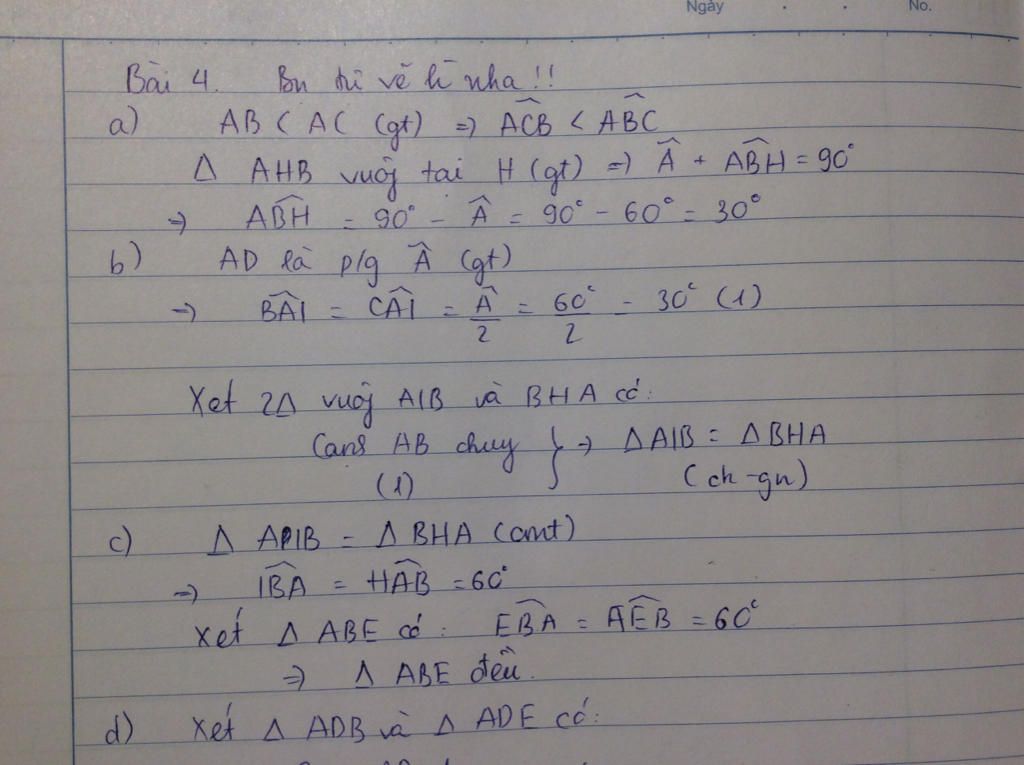 Ngày . . No.
Bài 4. Bn tự vẽ hì nha!!
a) AB < AC (gt) => ACB < ABC
Δ AHB vuôg tại H (gt) => Â + ABH = 90°
=> ABH = 90° - Â = 90° - 60° = 30°
b) AD là p/g Â (gt)
=> BAI = CAI = Â/2 = 60°/2 = 30° (1)
Xét 2Δ vuôg AIB và BHA có:
Cạnh AB chug } => ΔAIB = ΔBHA
(1) (ch-gn)
c) Δ AIB = Δ BHA (cmt)
=> IBA = HAB = 60°
Xét Δ ABE có: EBA = AEB = 60°
=> Δ ABE đều.
d) Xét Δ ADB và Δ ADE có: